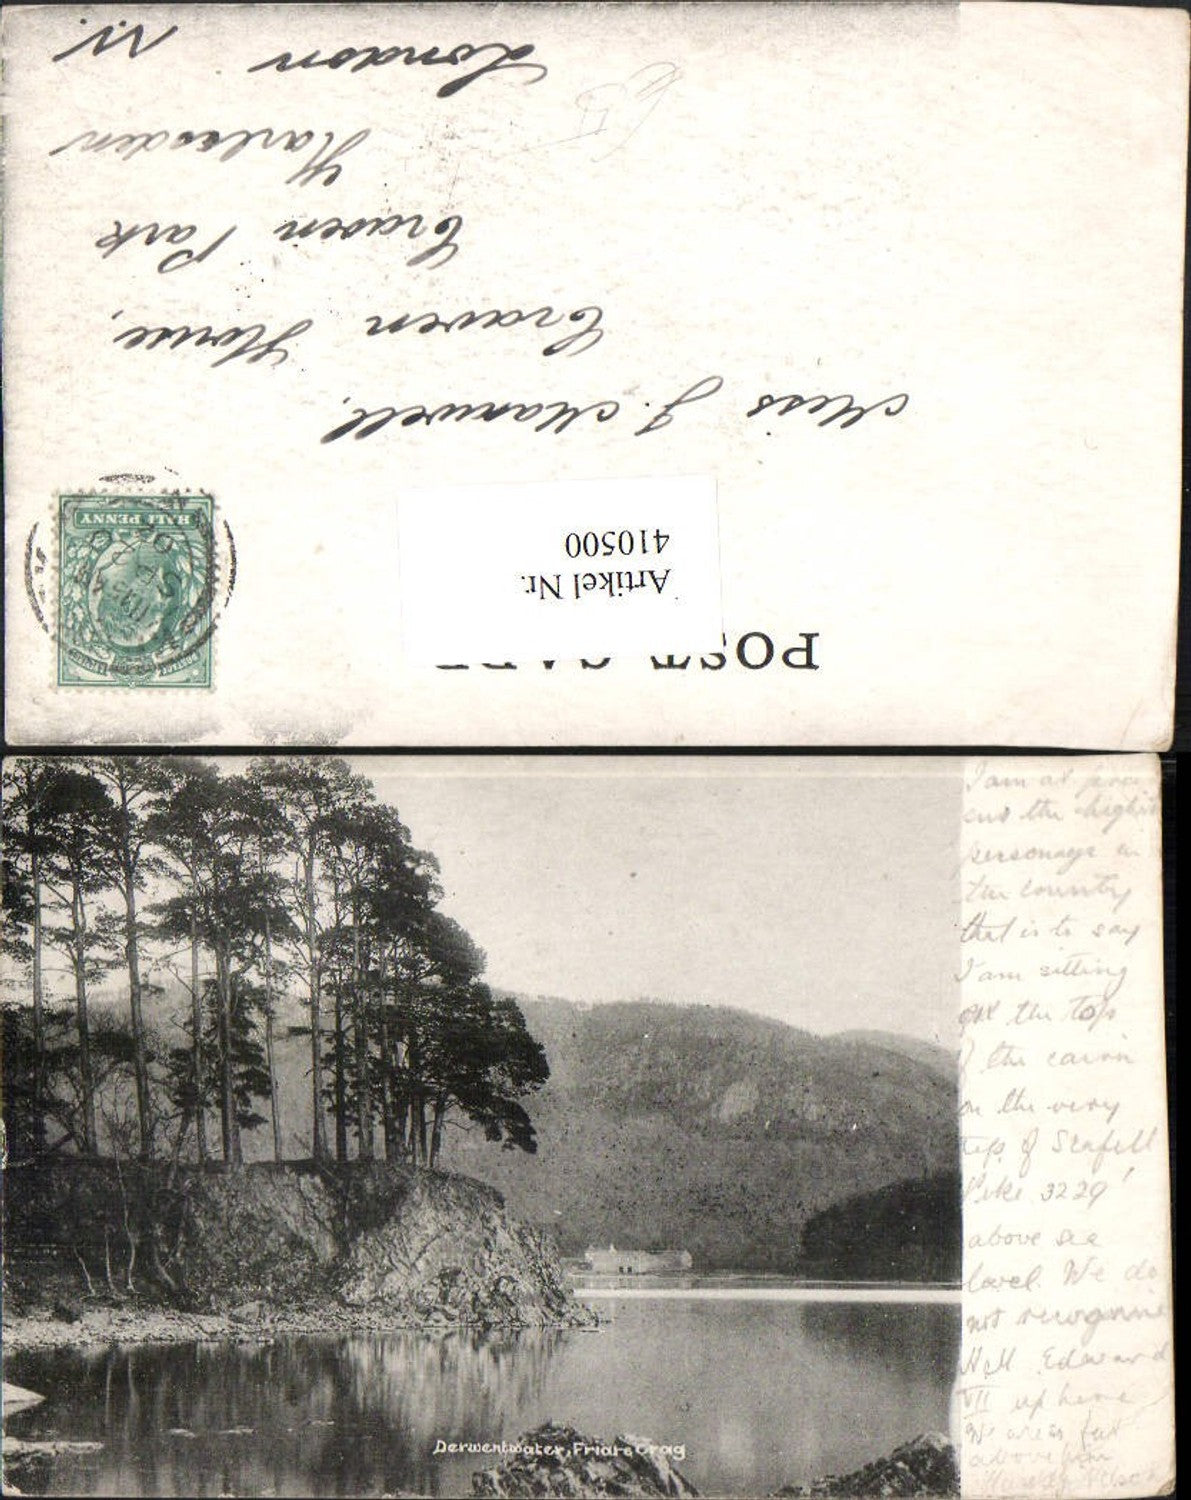 POST CARD
Artikel Nr.
410500
HALF PENNY
Miss J. Maxwell,
Craven House,
Craven Park
Harlesden
London N.
I am at pres
ent the highest
personage in
the country
that is to say
I am sitting
on the top
of the cairn
on the very
top of Scafell
Pike 3229'
above sea
level. We do
not recognise
Edward
VII up here
We are far
above him
Derwentwater, Friars Crag